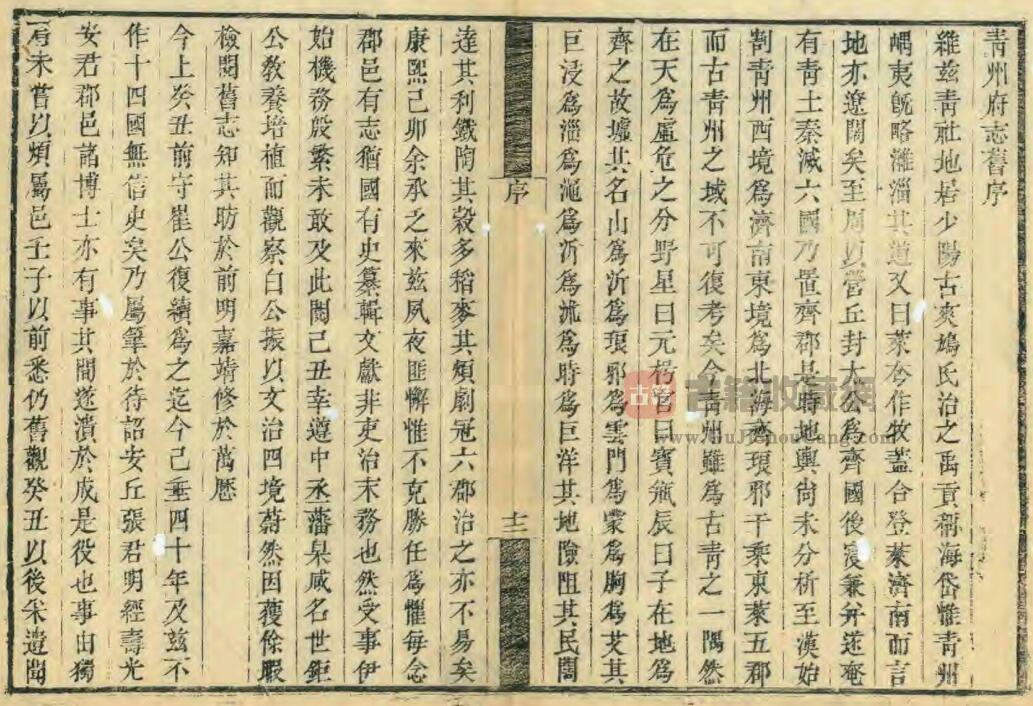 青州府志舊序
維茲青社地居少陽古爽鳩氏治之禹貢稱海岱惟青州
嵎夷旣略濰淄其道又曰萊夷作牧蓋合登萊濟南而言
地亦遼闊矣至周以營丘封太公爲齊國後寖兼幷遂奄
有青土秦滅六國乃置齊郡是時地輿尙未分析至漢始
割青州西境爲濟南東境爲北海齊琅邪千乘東萊五郡
而古青州之域不可復考矣今青州雖爲古青之一隅然
在天爲虛危之分野星曰元枵宿曰賓瓶辰曰子在地爲
齊之故墟其名山爲沂爲琅邪爲雲門爲蒙爲朐爲艾其
巨浸爲淄爲澠爲沂爲沭爲時爲巨洋其地險阻其民闊
序
十三
達其利鐵陶其穀多稻麥其煩劇冠六郡治之亦不易矣
康熙己卯余承乏來茲夙夜匪懈惟不克勝任爲懼每念
郡邑有志猶國有史纂輯文獻非吏治末務也然受事伊
始機務殷繁未敢及此閱己丑幸遵中丞藩臬咸名世鉅
公敎養培植而觀察白公振以文治四境蔚然因獲餘暇
檢閱舊志知其昉於前明嘉靖修於萬厯
今上癸丑前守崔公復續爲之迄今己垂四十年及茲不
作十四國無信史矣乃屬筆於待詔安丘張君明經壽光
安君郡邑諸博士亦有事其間遂潰於成是役也事由獨
肩未嘗以煩屬邑壬子以前悉仍舊觀癸丑以後采遺聞
古籍
古籍收藏網
www.GuJiShouCang.com